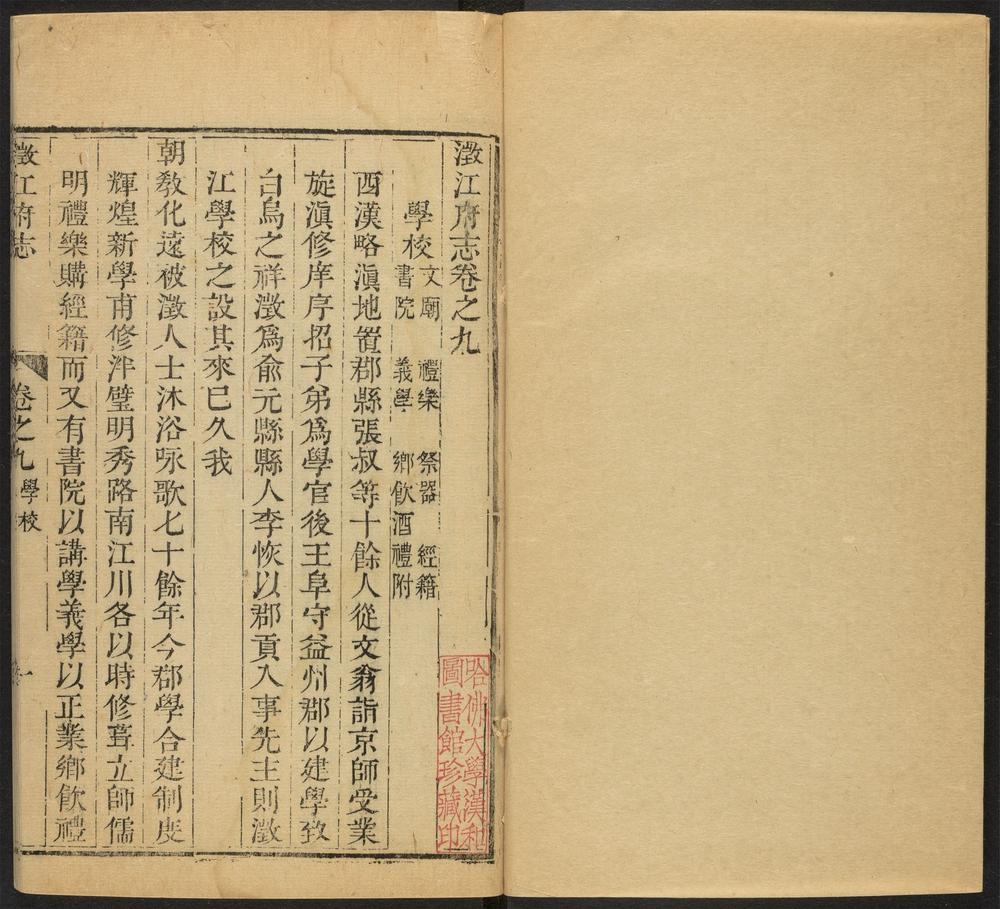 澂江府志卷之九
學校 文廟 禮樂 祭器 經籍
書院 義學 鄉飲酒禮附
西漢略滇地置郡縣張叔等十餘人從文翁詣京師受業
旋滇修庠序招子弟爲學官後王阜守益州郡以建學致
白烏之祥澂爲俞元縣縣人李恢以郡貢入事先主則澂
江學校之設其來已久我
朝敎化遠被澂人士沐浴咏歌七十餘年今郡學合建制度
輝煌新學甫修泮璧明秀路南江川各以時修葺立師儒
明禮樂購經籍而又有書院以講學義學以正業鄉飲禮
澂江府志
卷之九 學校
一
哈佛大學漢和
圖書館珍藏印